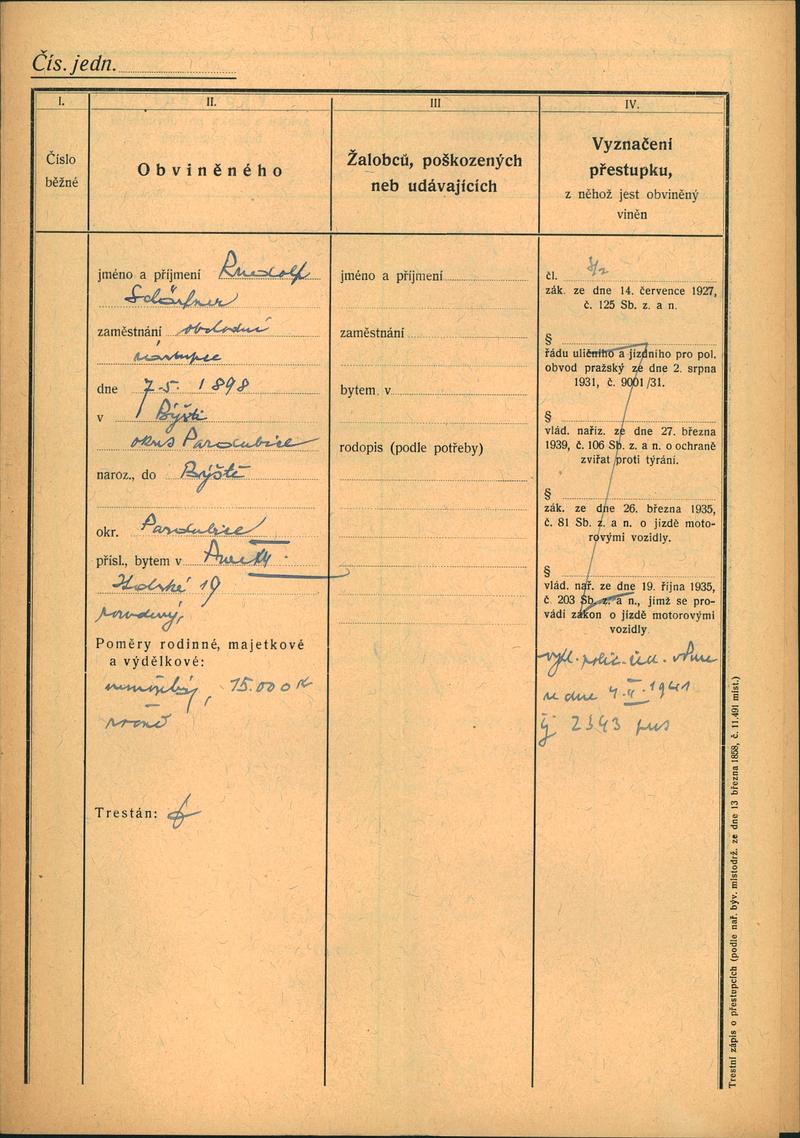 Čís. jedn.
I.
II.
III
IV.
Číslo
běžné
Obviněného
Žalobců, poškozených
neb udávajících
Vyznačení
přestupku,
z něhož jest obviněný
viněn
jméno a příjmení Rudolf
zaměstnání obchodní
zástupce
dne 7.5. 1898
v Býšti
okres Pardubice
naroz., do Býště
okr. Pardubice
přísl., bytem v
19
rozvedený,
Poměry rodinné, majetkové
a výdělkové:
nemajetný, 15.000 K
ročně
Trestán:
jméno a příjmení
zaměstnání
bytem v
rodopis (podle potřeby)
čl.
zák. ze dne 14. července 1927,
č. 125 Sb. z. a n.
§
řádu uličního a jízdního pro pol.
obvod pražský ze dne 2. srpna
1931, č. 9001/31.
§
vlád. naříz. ze dne 27. března
1939, č. 106 Sb. z. a n. o ochraně
zvířat proti týrání.
§
zák. ze dne 26. března 1935,
č. 81 Sb. z. a n. o jízdě moto-
rovými vozidly.
§
vlád. nař. ze dne 19. října 1935,
č. 203 Sb. z. a n., jímž se pro-
vádí zákon o jízdě motorovými
vozidly
vyhl. polic.
ze dne 1941
čj 2343
Trestní zápis o přestupcích (podle nař. býv. místodrž. ze dne 13 března 1858, č. 11.491 míst.)